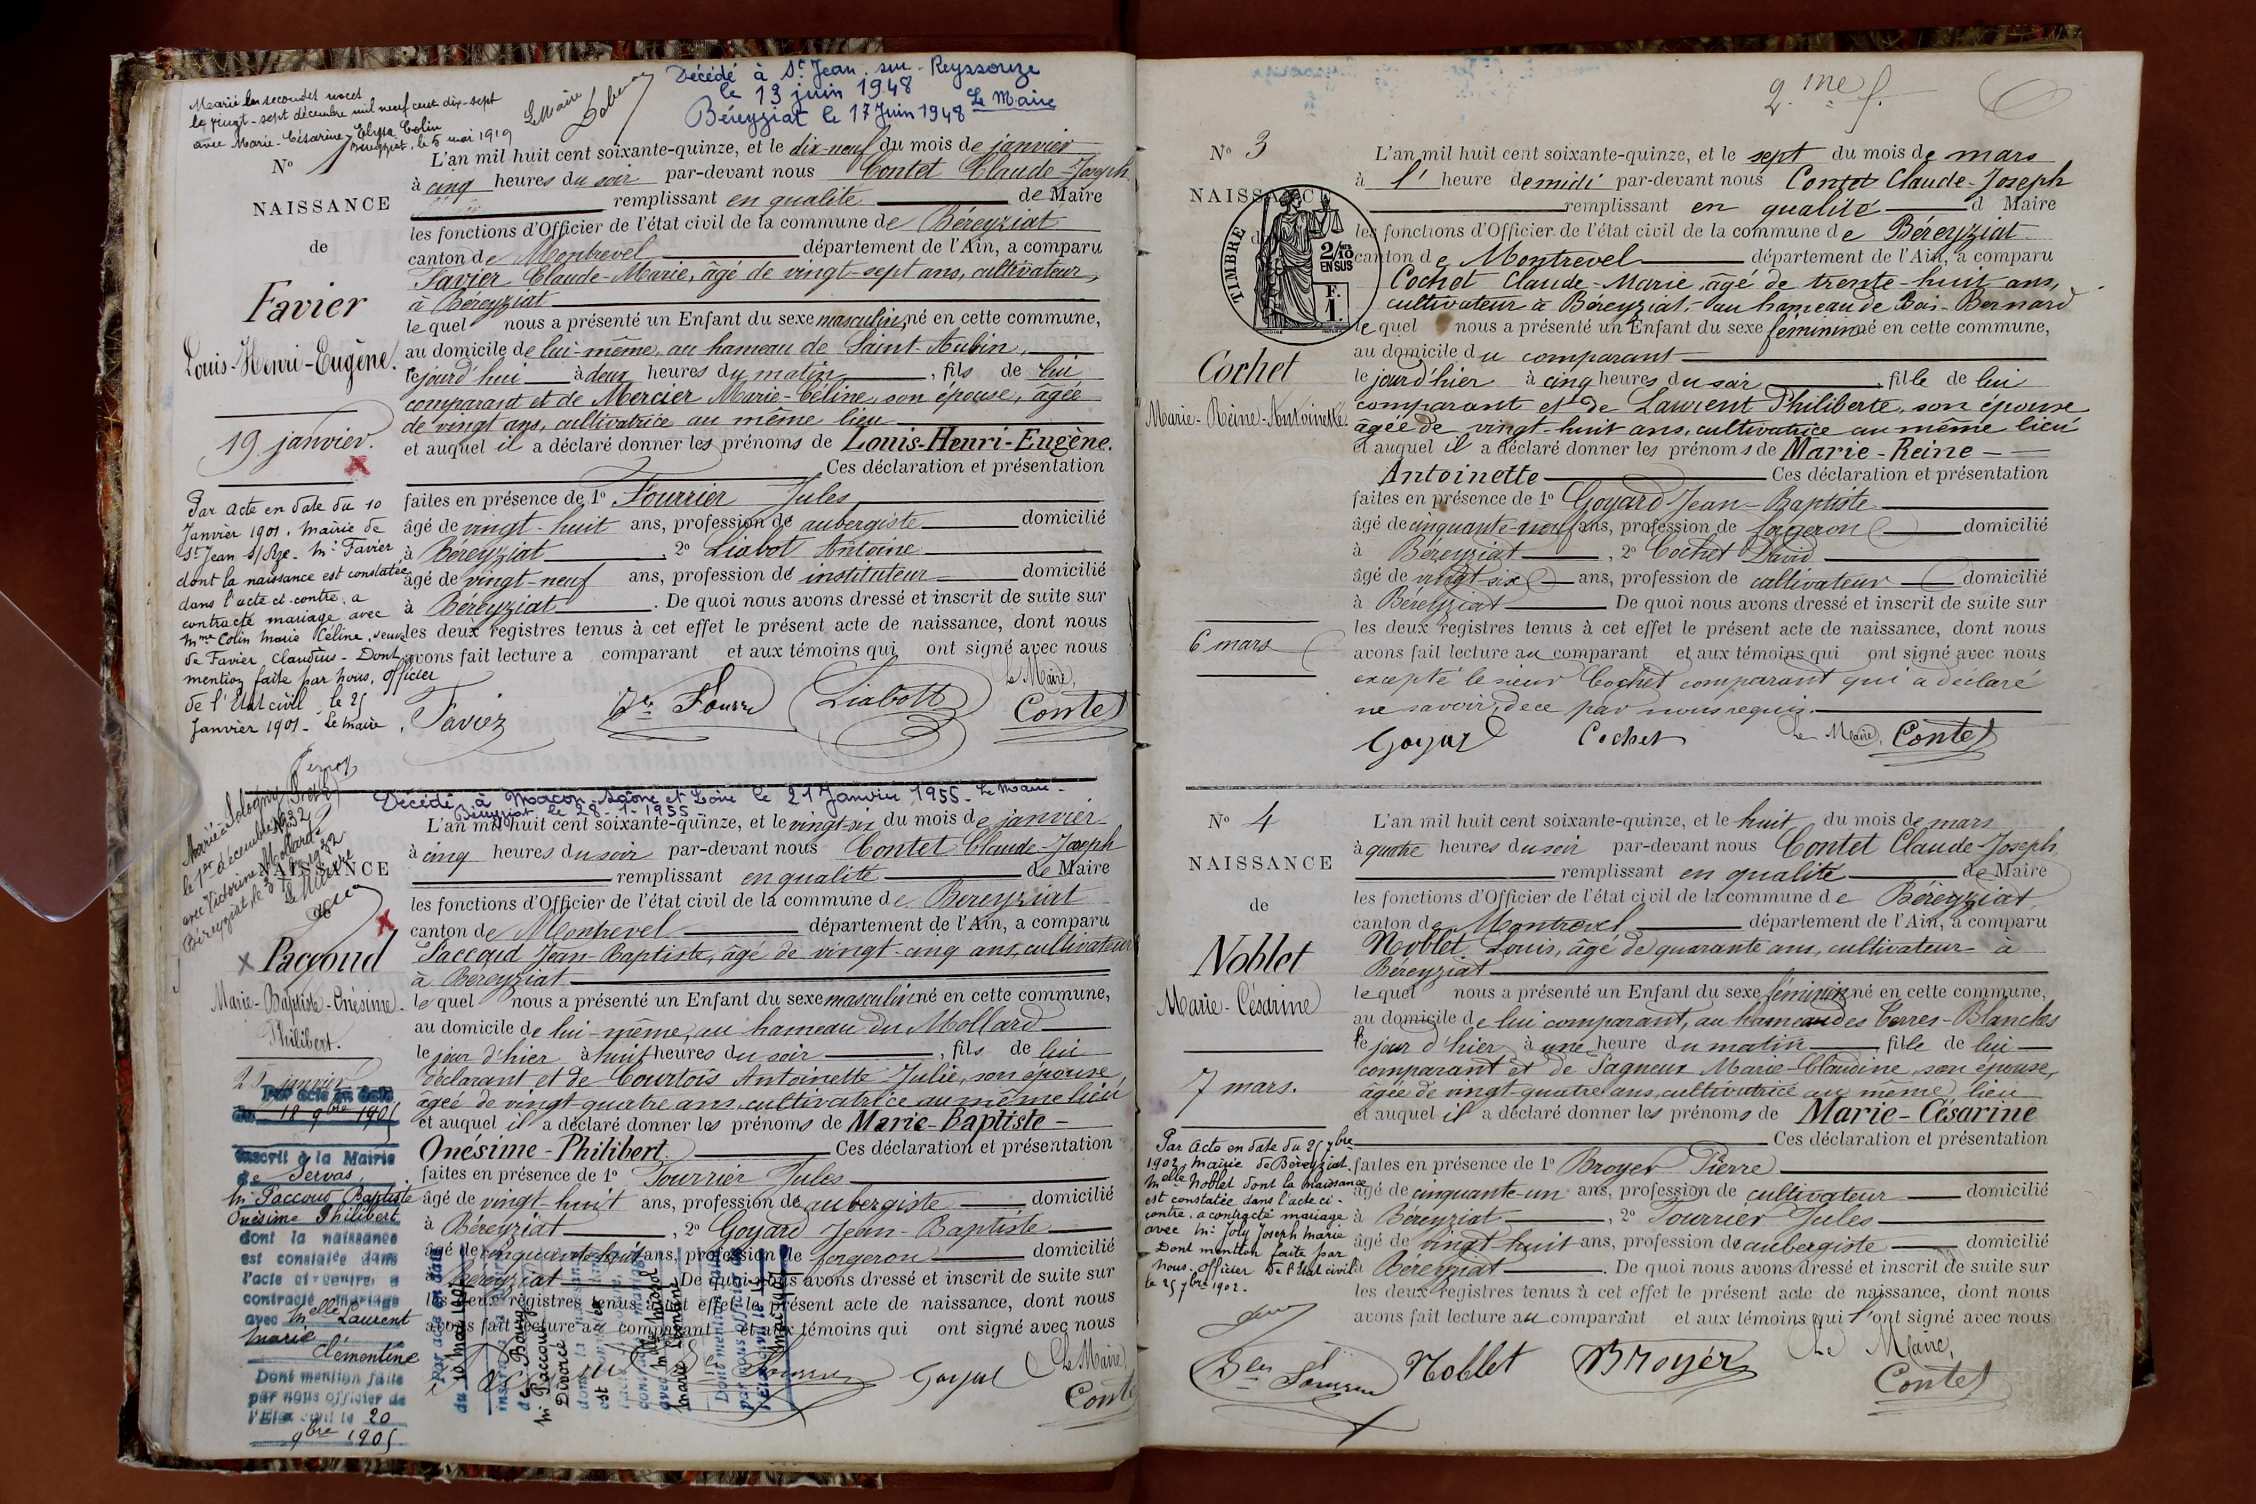 Marié en secondes noces
le vingt-sept décembre mil neuf cent dix-sept
avec Marie-Césarine-Elysa Colin
Béreyziat, le 5 mai 1919
Le Maire
Décédé à St Jean-sur-Reyssouze
le 13 juin 1948
Béreyziat le 17 Juin 1948 Le Maire
No 1
NAISSANCE
de
Favier
Louis-Henri-Eugène.
19 janvier.
Par acte en date du 10
Janvier 1901. Mairie de
St Jean s/Rze. Mr Favier
dont la naissance est constatée
dans l'acte ci-contre, a
contracté mariage avec
Mme Colin Marie Céline, veuve
de Favier Claudius - Dont
mention faite par nous, officier
de l'Etat civil le 25
Janvier 1901 - Le Maire
L'an mil huit cent soixante-quinze, et le dix-neuf du mois de janvier
à cinq heures du soir par-devant nous Contet Claude-Joseph
remplissant en qualité de Maire
les fonctions d'Officier de l'état civil de la commune de Béreyziat
canton de Montrevel département de l'Ain, a comparu
Favier Claude-Marie, âgé de vingt-sept ans, cultivateur,
à Béreyziat
lequel nous a présenté un Enfant du sexe masculin, né en cette commune,
au domicile de lui-même, au hameau de Saint-Aubin,
le jourd'hui à deux heures du matin, fils de lui
comparant et de Mercier Marie-Céline, son épouse, âgée
de vingt ans, cultivatrice au même lieu
et auquel il a déclaré donner les prénoms de Louis-Henri-Eugène.
Ces déclaration et présentation
faites en présence de 1o Fourrier Jules
âgé de vingt-huit ans, profession de aubergiste domicilié
à Béreyziat, 2o Liabot Antoine
âgé de vingt-neuf ans, profession de instituteur domicilié
à Béreyziat. De quoi nous avons dressé et inscrit de suite sur
les deux registres tenus à cet effet le présent acte de naissance, dont nous
avons fait lecture a comparant et aux témoins qui ont signé avec nous
Le Maire,
Favier Liabott Contet
Marié à Sologny (S et L)
le 1er décembre 1932
avec Victorine Mollard
Béreyziat, le 3 Xbre 1932
Le Maire
Décédé à Macon Saône et Loire le 21 Janvier 1955 - Le Maire -
Béreyziat le 28-1-1955
NAISSANCE
Paccoud
Marie-Baptiste-Onésime-
Philibert.
25 janvier
Par acte en date
du 18 9bre 1905
inscrit à la Mairie
de Servas,
Mr Paccoud Baptiste
Onésime Philibert
dont la naissance
est constatée dans
l'acte ci-contre, a
contracté mariage
avec Melle Laurent
Marie
Clémentine
Dont mention faite
par nous officier de
l'Etat civil le 20
9bre 1905
L'an mil huit cent soixante-quinze, et le vingt-six du mois de janvier
à cinq heures du soir par-devant nous Contet Claude-Joseph
remplissant en qualité de Maire
les fonctions d'Officier de l'état civil de la commune de Béreyziat
canton de Montrevel département de l'Ain, a comparu
Paccoud Jean-Baptiste, âgé de vingt-cinq ans, cultivateur
à Béreyziat
lequel nous a présenté un Enfant du sexe masculin né en cette commune,
au domicile de lui-même, au hameau du Mollard
le jour d'hier à huit heures du soir, fils de lui
déclarant et de Courtois Antoinette-Julie, son épouse,
âgée de vingt-quatre ans, cultivatrice au même lieu
et auquel il a déclaré donner les prénoms de Marie-Baptiste-
Onésime-Philibert. Ces déclaration et présentation
faites en présence de 1o Fourrier Jules
âgé de vingt-huit ans, profession de aubergiste domicilié
à Béreyziat, 2o Goyard Jean-Baptiste
âgé de cinquante-huit ans, profession de forgeron domicilié
à Béreyziat De quoi nous avons dressé et inscrit de suite sur
les deux registres tenus à cet effet le présent acte de naissance, dont nous
avons fait lecture au comparant et aux témoins qui ont signé avec nous
Par acte en date
du 10 mai
Mr Paccoud
Divorcé
Le Maire,
Goyard Contet
2.me f.
No 3
NAISSANCE
de
TIMBRE
2/10
EN SUS
F.
1.
Cochet
Marie-Reine-Antoinette.
6 mars
L'an mil huit cent soixante-quinze, et le sept du mois de mars
à l' heure de midi par-devant nous Contet Claude-Joseph
remplissant en qualité d Maire
les fonctions d'Officier de l'état civil de la commune de Béreyziat
canton de Montrevel département de l'Ain, a comparu
Cochet Claude-Marie, âgé de trente-huit ans,
cultivateur à Béreyziat, au hameau de Bois-Bernard
lequel nous a présenté un Enfant du sexe féminin né en cette commune,
au domicile du comparant
le jour d'hier à cinq heures du soir, fille de lui
comparant et de Laurent Philiberte, son épouse
âgée de vingt-huit ans, cultivatrice au même lieu
et auquel il a déclaré donner les prénoms de Marie-Reine-
Antoinette Ces déclaration et présentation
faites en présence de 1o Goyard Jean-Baptiste
âgé de cinquante-neuf ans, profession de forgeron domicilié
à Béreyziat, 2o Cochet David
âgé de vingt six ans, profession de cultivateur domicilié
à Béreyziat De quoi nous avons dressé et inscrit de suite sur
les deux registres tenus à cet effet le présent acte de naissance, dont nous
avons fait lecture au comparant et aux témoins qui ont signé avec nous
excepté le sieur Cochet comparant qui a déclaré
ne savoir, de ce par nous requis.
Goyard Cochet Le Maire, Contet
No 4
NAISSANCE
de
Noblet
Marie-Césarine
7 mars.
Par Acte en date du 25 7bre
1902, mairie de Béreyziat,
Melle Noblet dont la naissance
est constatée dans l'acte ci-
contre, a contracté mariage
avec Mr Joly Joseph Marie
Dont mention faite par
nous, officier de l'Etat civil
le 25 7bre 1902.
L'an mil huit cent soixante-quinze, et le huit du mois de mars
à quatre heures du soir par-devant nous Contet Claude-Joseph
remplissant en qualité de Maire
les fonctions d'Officier de l'état civil de la commune de Béreyziat
canton de Montrevel département de l'Ain, a comparu
Noblet Louis, âgé de quarante ans, cultivateur à
Béreyziat
lequel nous a présenté un Enfant du sexe féminin né en cette commune,
au domicile de lui comparant, au hameau des Terres-Blanches
le jour d'hier à une heure du matin fille de lui
comparant et de Pagneux Marie-Claudine, son épouse,
âgée de vingt-quatre ans, cultivatrice au même lieu
et auquel il a déclaré donner les prénoms de Marie-Césarine
Ces déclaration et présentation
faites en présence de 1o Broyer Pierre
âgé de cinquante-un ans, profession de cultivateur domicilié
à Béreyziat, 2o Fourrier Jules
âgé de vingt-huit ans, profession de aubergiste domicilié
à Béreyziat. De quoi nous avons dressé et inscrit de suite sur
les deux registres tenus à cet effet le présent acte de naissance, dont nous
avons fait lecture au comparant et aux témoins qui ont signé avec nous
Le Maire,
Noblet Broyer Contet